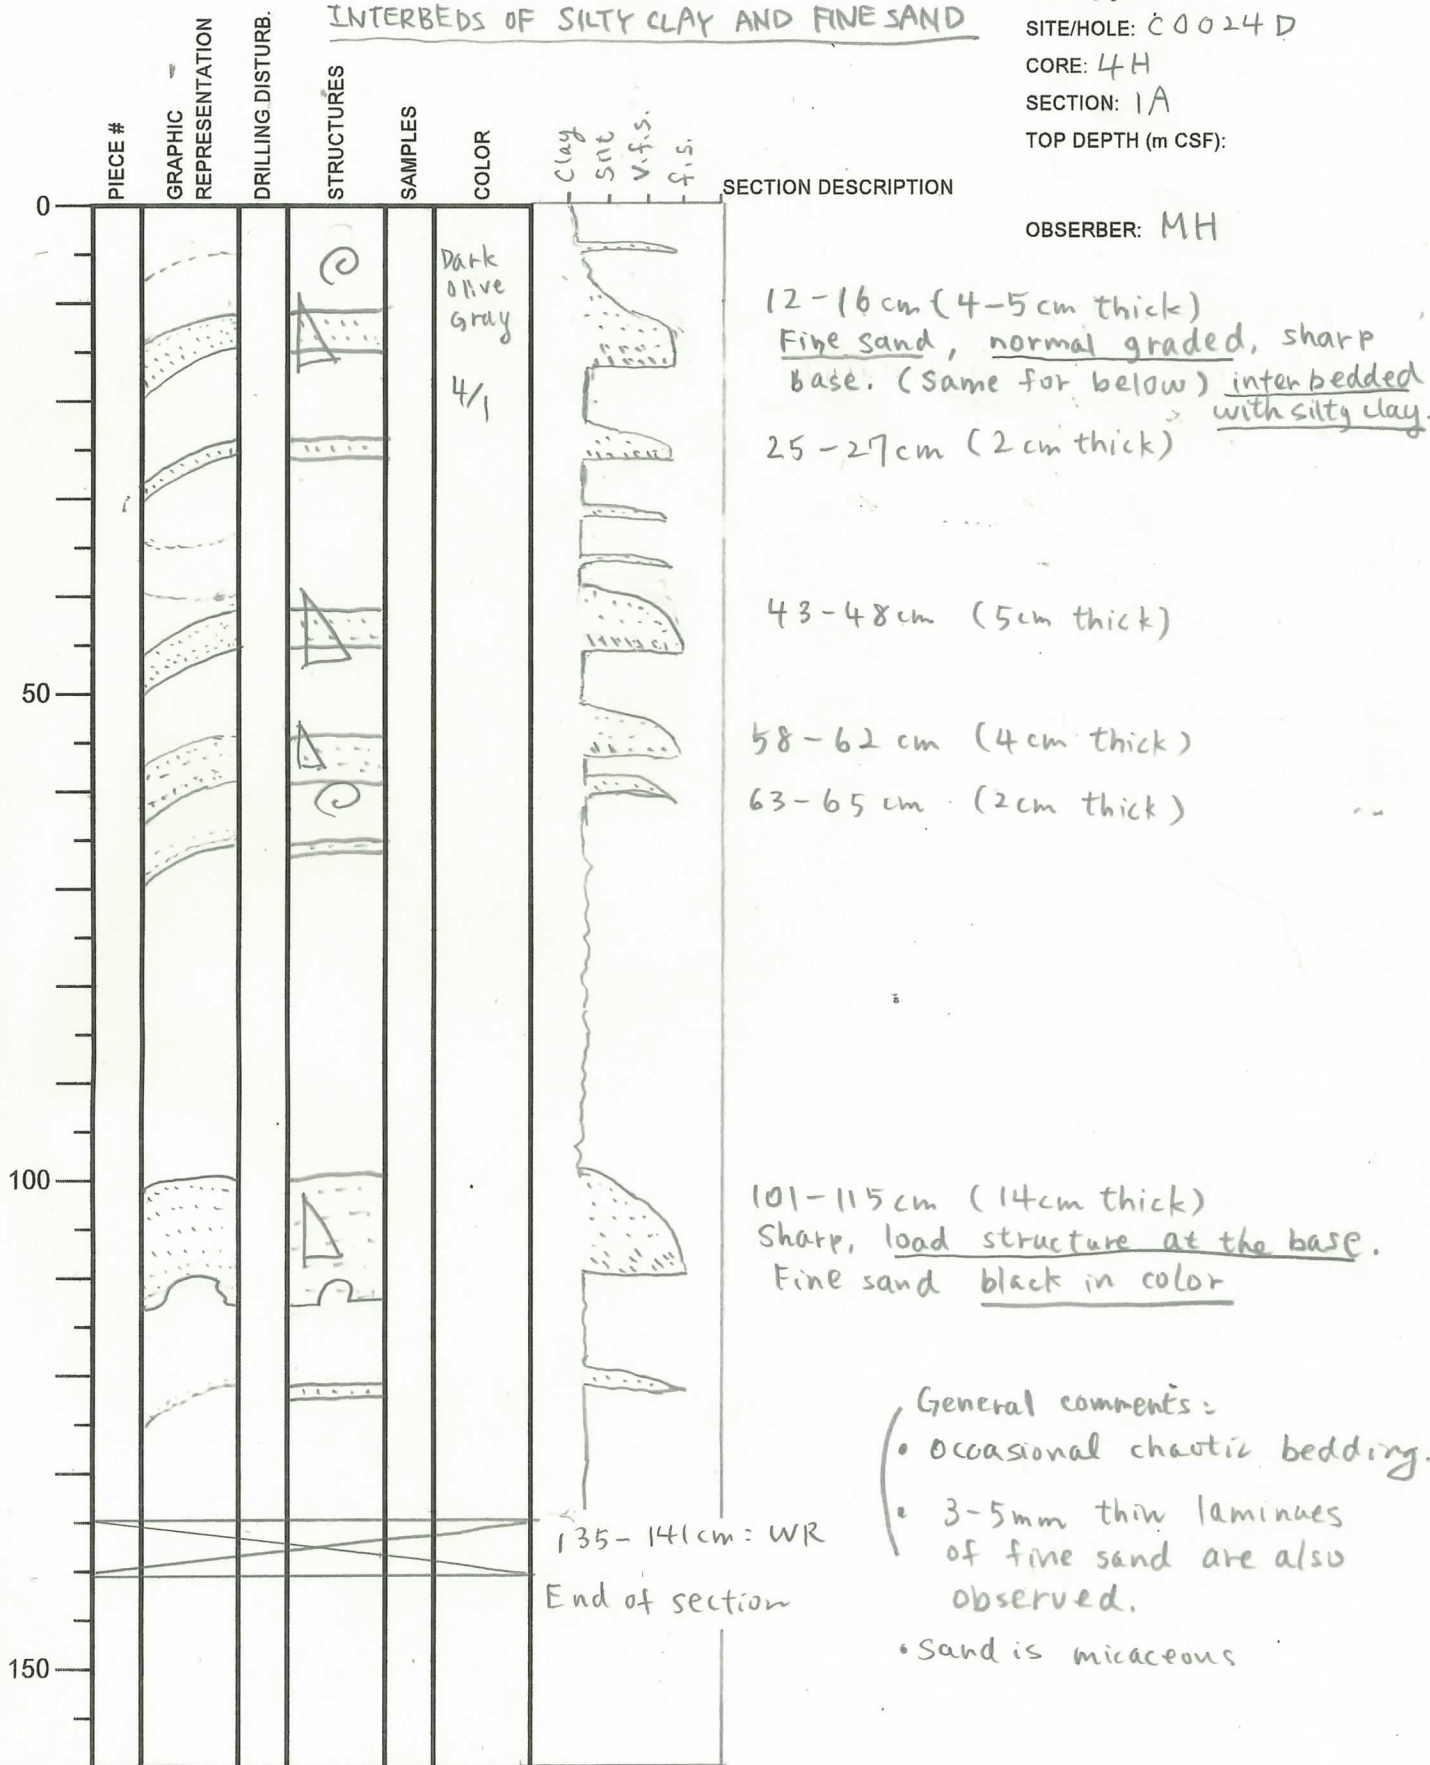 INTERBEDS OF SILTY CLAY AND FINE SAND
SITE/HOLE: C0024D
CORE: 4H
SECTION: 1A
TOP DEPTH (m CSF):
OBSERBER: MH
PIECE #
GRAPHIC
REPRESENTATION
DRILLING DISTURB.
STRUCTURES
SAMPLES
COLOR
Clay
Silt
V.f.s.
f.s.
SECTION DESCRIPTION
0
Dark
olive
Gray
4/1
12-16 cm (4-5 cm thick)
Fine sand, normal graded, sharp
base. (Same for below) interbedded
with silty clay.
25-27cm (2 cm thick)
43-48cm (5cm thick)
50
58-62 cm (4cm thick)
63-65 cm (2cm thick)
100
101-115cm (14cm thick)
Sharp, load structure at the base.
Fine sand black in color
General comments:
• Occasional chaotic bedding.
• 3-5mm thin laminaes
of fine sand are also
observed.
• Sand is micaceous
135-141cm: WR
End of section
150